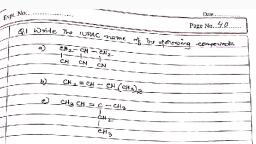 Expt. No.
Date
Page No. 40
Q.1 Write The IUPAC name of The following compounds
a) CH2 - CH - CH2
CN CN CN
b) CH2 = CH - CH (CH3)2
c) CH3 CH = C - CH3
CH2
CH3